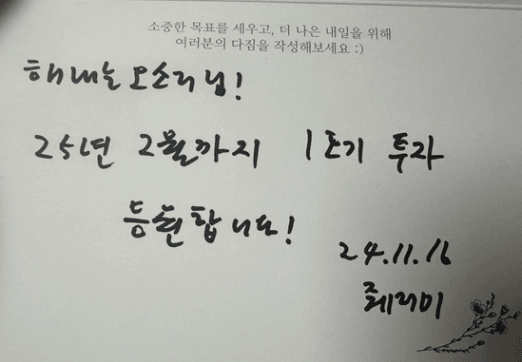 소중한 목표를 세우고, 더 나은 내일을 위해
여러분의 다짐을 작성해보세요 :)
해내는오소리님!
25년 2월까지 1호기 투자
응원합니다!
24.11.16